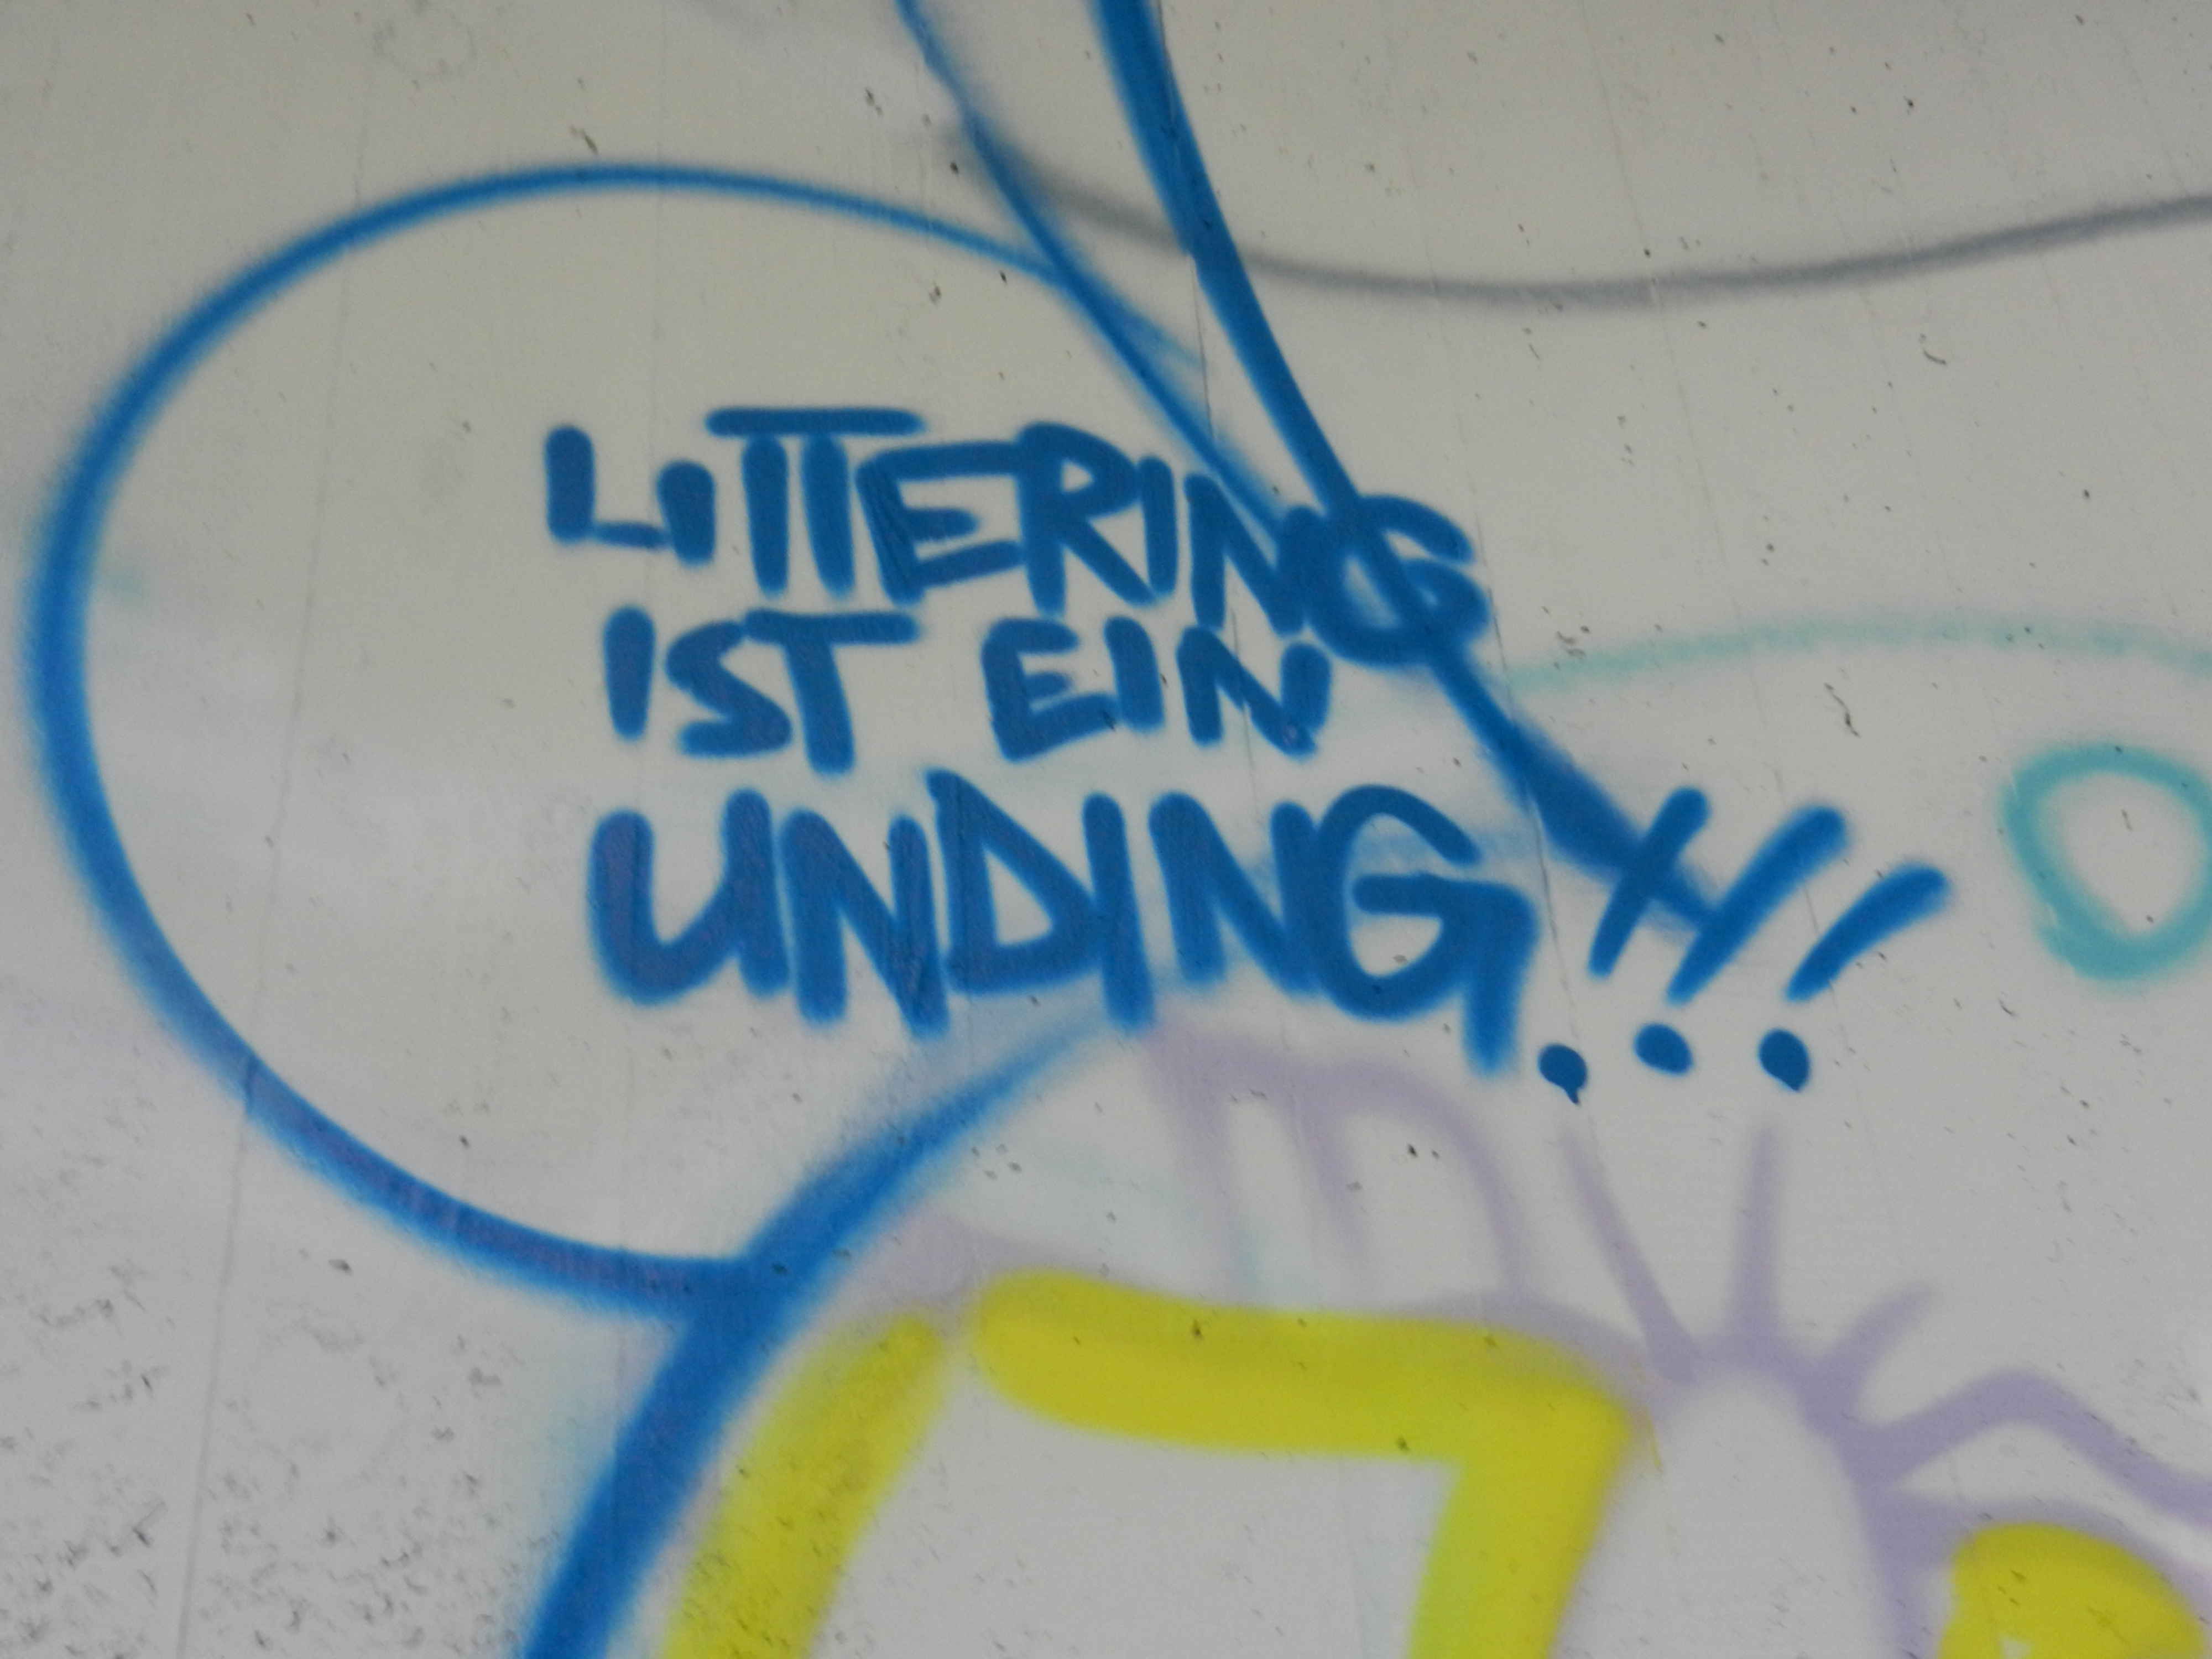 LITTERING
IST EIN
UNDING!!!